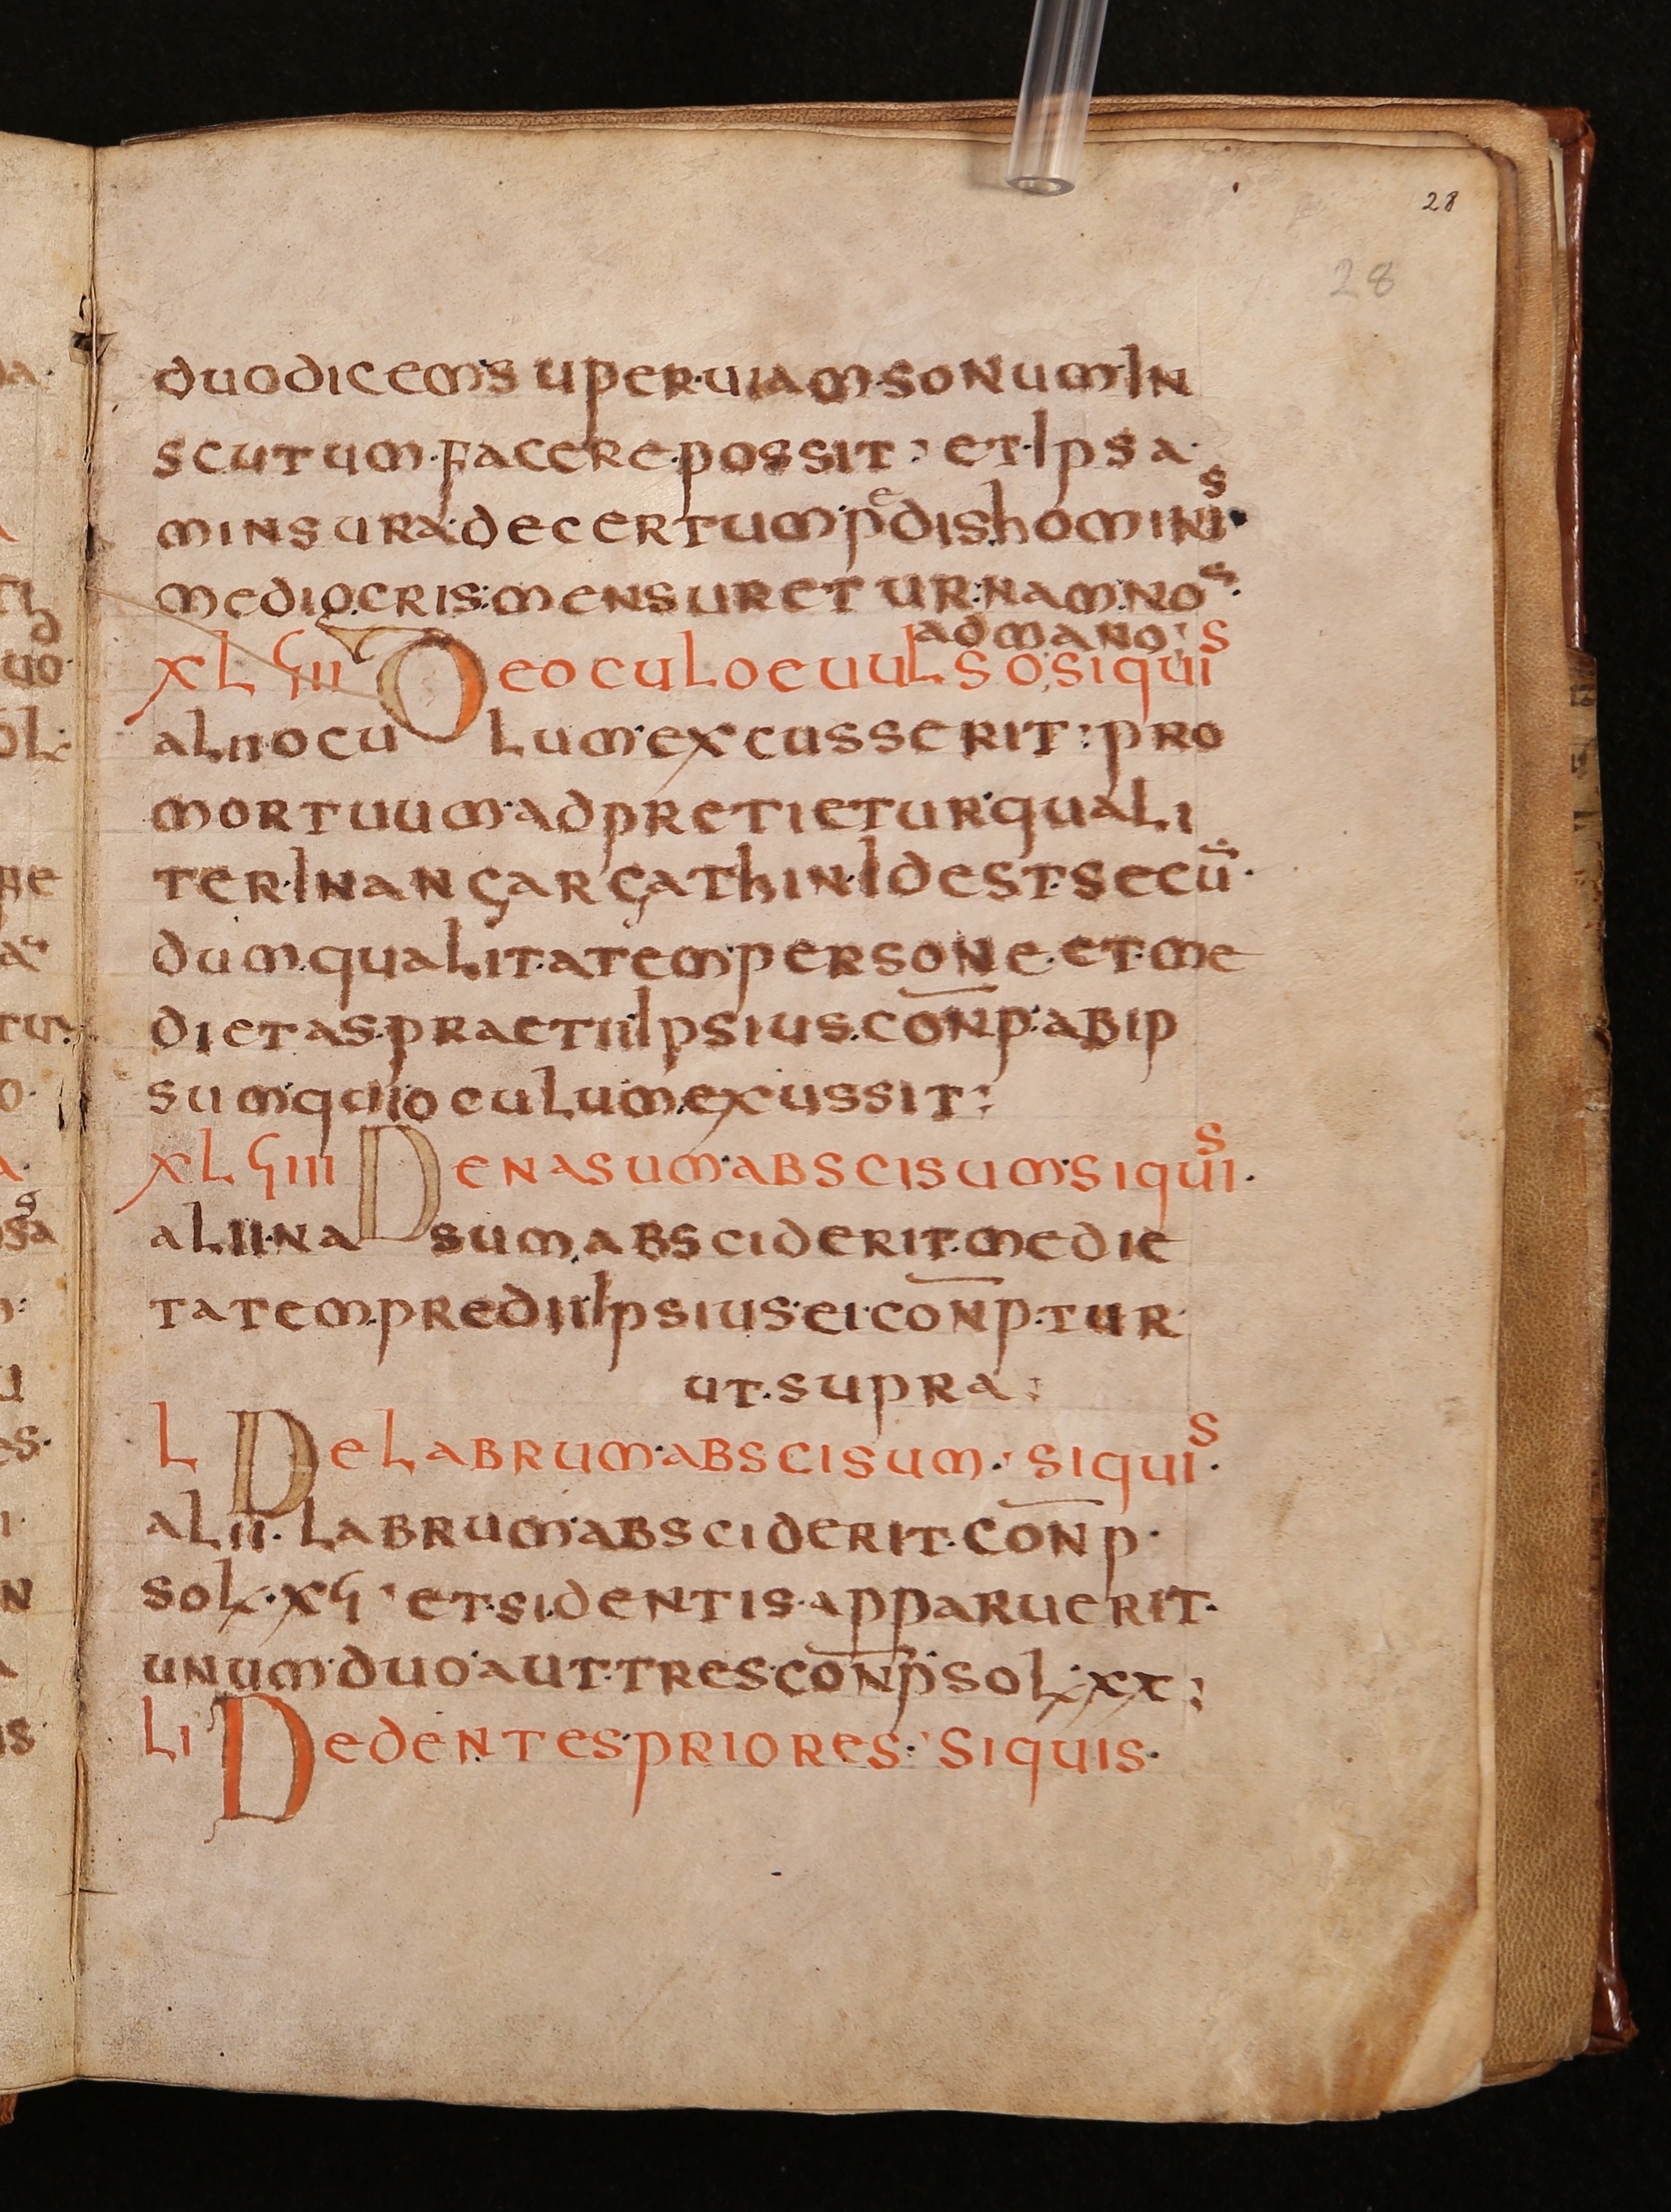 28
28
duodicem super·uiam·sonum·In
scutum·facere·possit: et·Ipsa·
minsura·decertum·pedis·hominis·
mediocris:mensuretur·nam·nos·
admano:
XLҁII De oculo euulso, siquis
alii·oculum·excusserit: pro
mortuum·adpretietur·quali
ter·In angargathin·Idest·secū·
dum·qualitatem·persone·et·me
dietas·praetii Ipsius·conp·abip
sum·qui oculum·excussit:
XLҁIII De nasum·abscisum·siquis·
alii·nasum·absciderit·medie
tatem·predii Ipsius·ei·conp·tur·
ut·supra:
L De labrum·abscisum: siquis·
alii·labrum·absciderit·conp·
sol·xҁ· et·si·dentis·apparuerit·
unum·duo·aut·tres·conp·sol·xx:
LI De dentes·priores: siquis·